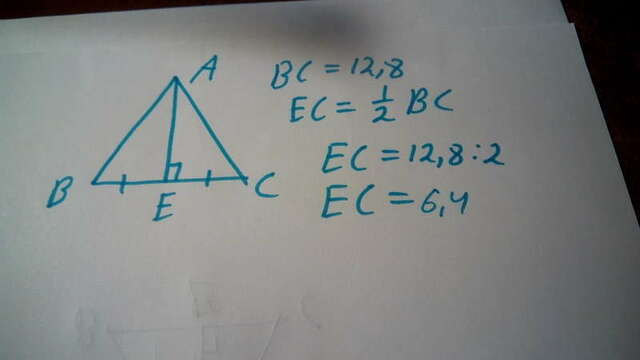 A
B
E
C
BC = 12,8
EC = 1/2 BC
EC = 12,8 : 2
EC = 6,4